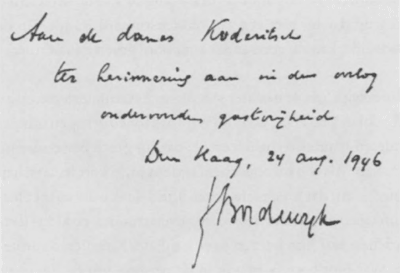 Aan de dames Koderitsch
ter herinnering aan in den oorlog
ondervonden gastvrijheid
Den Haag, 24 aug. 1946
F Bordewijk